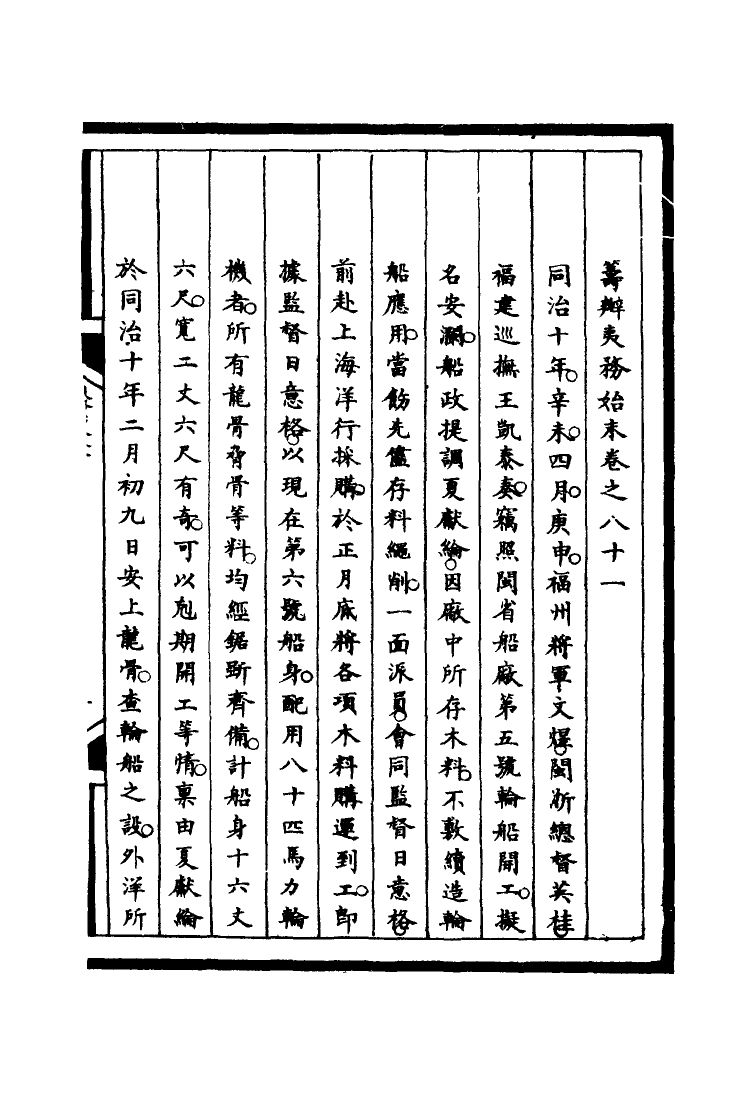 籌辦夷務始末卷之八十一
同治十年。辛未。四月。庚申。福州將軍文煜。閩浙總督英桂。
福建巡撫王凱泰奏。竊照閩省船廠第五號輪船開工。擬
名安瀾。船政提調夏獻綸。因廠中所存木料。不敷續造輪
船應用。當飭先儘存料繩削。一面派員。會同監督日意格。
前赴上海洋行採購。於正月底將各項木料購運到工。卽
據監督日意格。以現在第六號船身。配用八十匹馬力輪
機者。所有龍骨脅骨等料。均經鋸斲齊備。計船身十六丈
六尺。寬二丈六尺有奇。可以剋期開工等情。稟由夏獻綸
於同治十年二月初九日安上龍骨。查輪船之設。外洋所